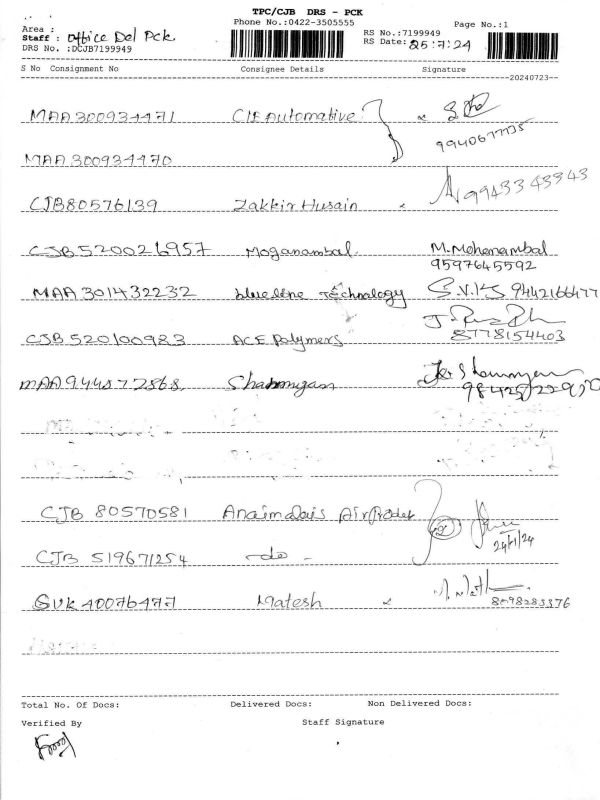 TPC/CJB DRS - PCK
Phone No.:0422-3505555
Page No.:1
Area :
Staff : office Del Pck
RS No.:7199949
DRS No. :DCJB7199949
RS Date: 25-7-24
S No Consignment No Consignee Details Signature
20240723
MAA 300934471 CIE Automative
9940677735
MAA 300934470
CJB80576139 Zakkir Husain 9943343343
CJB 520026957 Moganambal M. Mohanambal
9597645592
MAA 301432232 blue line Technology S.V.K.S 9442166477
CJB 520100983 ACE Polymers
8778154403
MAA9448772868 Shanmugam
CJB 80570581 Anaimalais
CJB 519671254 - do -
GVK 40076477 Matesh
8098283376
Total No. Of Docs: Delivered Docs: Non Delivered Docs:
Verified By Staff Signature